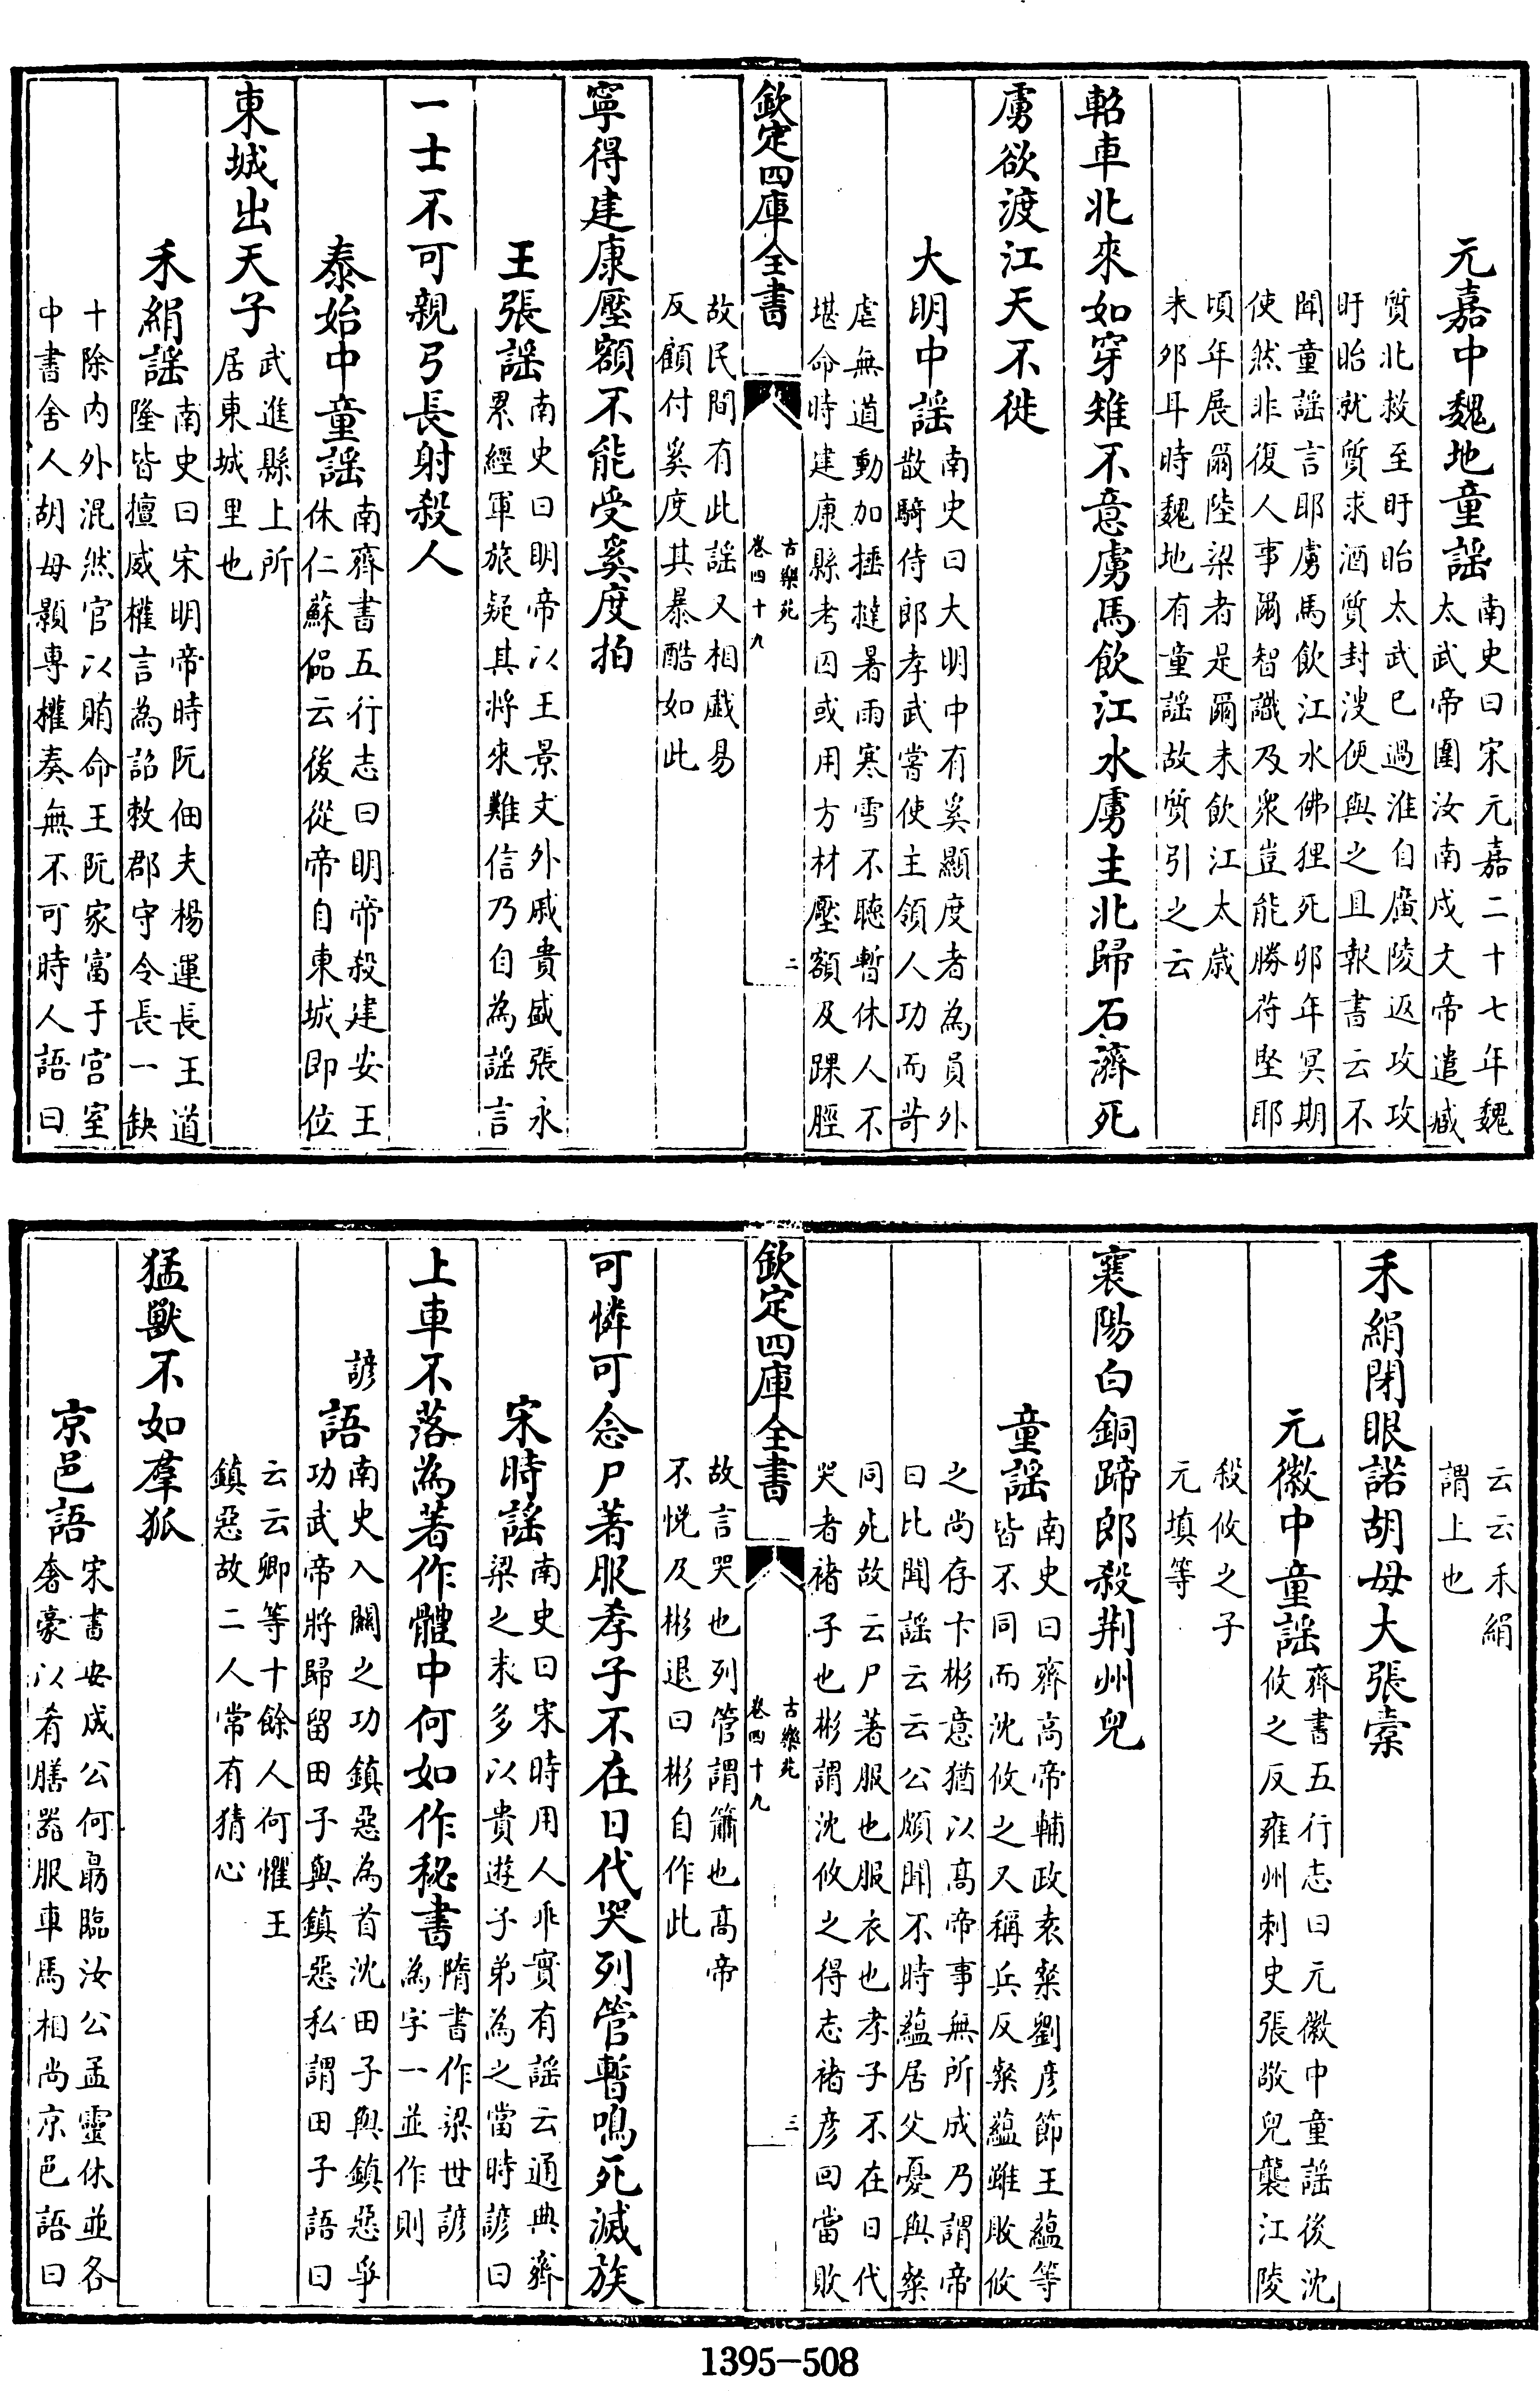 元嘉中魏地童謡南史曰宋元嘉二十七年魏
太武帝圍汝南戍文帝遣臧
質北救至盱眙太武已過淮自廣陵返攻攻
盱眙就質求酒質封溲便與之且報書云不
聞童謡言耶虜馬飲江水佛狸死卯年冥期
使然非復人事爾智識及衆豈能勝苻堅耶
頃年展爾陸梁者是爾未飲江太歳
未夘耳時魏地有童謡故質引之云
軺車北來如穿雉不意虜馬飲江水虜主北歸石濟死
虜欲渡江天不徙
大明中謡南史曰大明中有奚顯度者為員外
散騎侍郎孝武嘗使主領人功而苛
虐無道動加捶撻暑雨寒雪不聴暫休人不
堪命時建康縣考囚或用方材壓額及踝脛
欽定四庫全書
古樂苑
卷四十九
二
故民間有此謡又相戯易
反顧付奚度其暴酷如此
寧得建康壓額不能受奚度拍
王張謡南史曰明帝以王景文外戚貴盛張永
累經軍旅疑其將來難信乃自為謡言
一士不可親弓長射殺人
泰始中童謡南齊書五行志曰明帝殺建安王
休仁蘇侃云後從帝自東城即位
東城出天子武進縣上所
居東城里也
禾絹謡南史曰宋明帝時阮佃夫楊運長王道
隆皆擅威權言為詔敕郡守令長一缺
十除内外混然官以賄命王阮家富于宫室
中書舍人胡母顥專權奏無不可時人語曰
云云禾絹
謂上也
禾絹閉眼諾胡母大張橐
元徽中童謡齊書五行志曰元徽中童謡後沈
攸之反雍州刺史張敬兒襲江陵
殺攸之子
元填等
襄陽白銅蹄郎殺荆州兒
童謡南史曰齊高帝輔政袁粲劉彦節王蘊等
皆不同而沈攸之又稱兵反粲蘊雖敗攸
之尚存卞彬意猶以高帝事無所成乃謂帝
曰比聞謡云云公頗聞不時蘊居父憂與粲
同死故云尸著服也服衣也孝子不在日代
哭者褚子也彬謂沈攸之得志褚彦回當敗
欽定四庫全書
古樂苑
卷四十九
三
故言哭也列管謂簫也高帝
不悦及彬退曰彬自作此
可憐可念尸著服孝子不在日代哭列管暫鳴死滅族
宋時謡南史曰宋時用人乖實有謡云通典齊
梁之末多以貴遊子弟為之當時諺曰
上車不落為著作體中何如作秘書隋書作梁世諺
為字一並作則
諺語南史入關之功鎮惡為首沈田子與鎮惡爭
功武帝將歸留田子與鎮惡私謂田子語曰
云云卿等十餘人何懼王
鎮惡故二人常有猜心
猛獸不如羣狐
京邑語宋書安成公何勗臨汝公孟靈休並各
奢豪以肴膳器服車馬相尚京邑語曰
1395-508